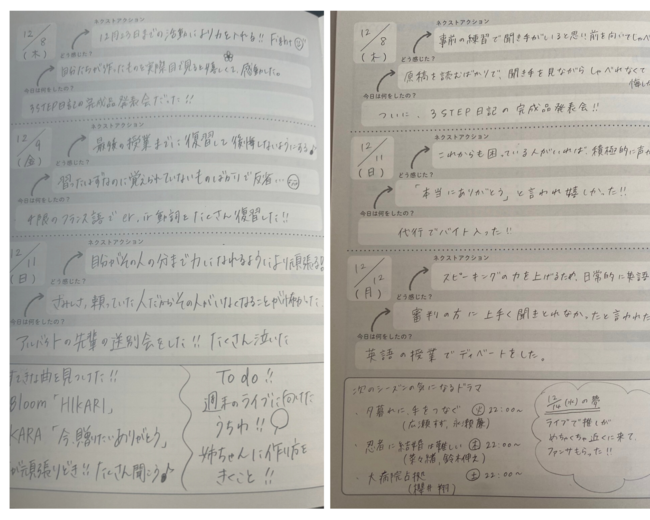 ネクストアクション
12/8
(木)
12月23日までの活動により力を入れる!! Fight
どう感じた?
自分たちが作ったものを実際目で見ると嬉しくて、感動した。
今日は何をしたの?
3STEP日記の完成品発表会だった!!
ネクストアクション
12/9
(金)
最後の授業までに復習して後悔しないようにする♪
どう感じた?
習ったはずなのに覚えられていないものばかりで反省…
今日は何をしたの?
フランス語でer, ir動詞をたくさん復習した!!
ネクストアクション
12/11
(日)
自分がその人の分まで力になれるようにより頑張る
どう感じた?
さみしさ、頼っていた人だからその人がいなくなることが
今日は何をしたの?
アルバイトの先輩の送別会をした!! たくさん泣いた
てきな曲を見つけた!!
Bloom「HIKARI」
KARA「今、贈りたいありがとう」
が頑張りどき!! たくさん聞こう♪
To do !!
週末のライブに向けた
うちわ!!
姉ちゃんに作り方を
きくこと!!
ネクストアクション
12/8
(木)
事前の練習で聞き手がいると思い前を向いてしゃべ
どう感じた?
原稿を読むばかりで、聞き手を見ながらしゃべれなくて
悔し
今日は何をしたの?
ついに、3STEP日記の完成品発表会!!
ネクストアクション
12/11
(日)
これからも困っている人がいれば積極的に声
どう感じた?
「本当にありがとう」と言われ嬉しかった!!
今日は何をしたの?
代行でバイト入った!!
ネクストアクション
12/12
(月)
スピーキングの力を上げるため、日常的に英語
どう感じた?
審判の方に上手く聞きとれなかったと言われた
今日は何をしたの?
英語の授業でディベートをした。
次のシーズンの気になるドラマ
・夕暮れに、手をつなぐ 火 22:00〜
(広瀬すず、永瀬廉)
・忍者に結婚は難しい 22:00〜
(菜々緒、鈴木伸之)
・大病院占拠 土 22:00〜
(櫻井翔)
12/14(水)の夢
ライブで推しが
めちゃくちゃ近くに来て、
ファンサもらった!!